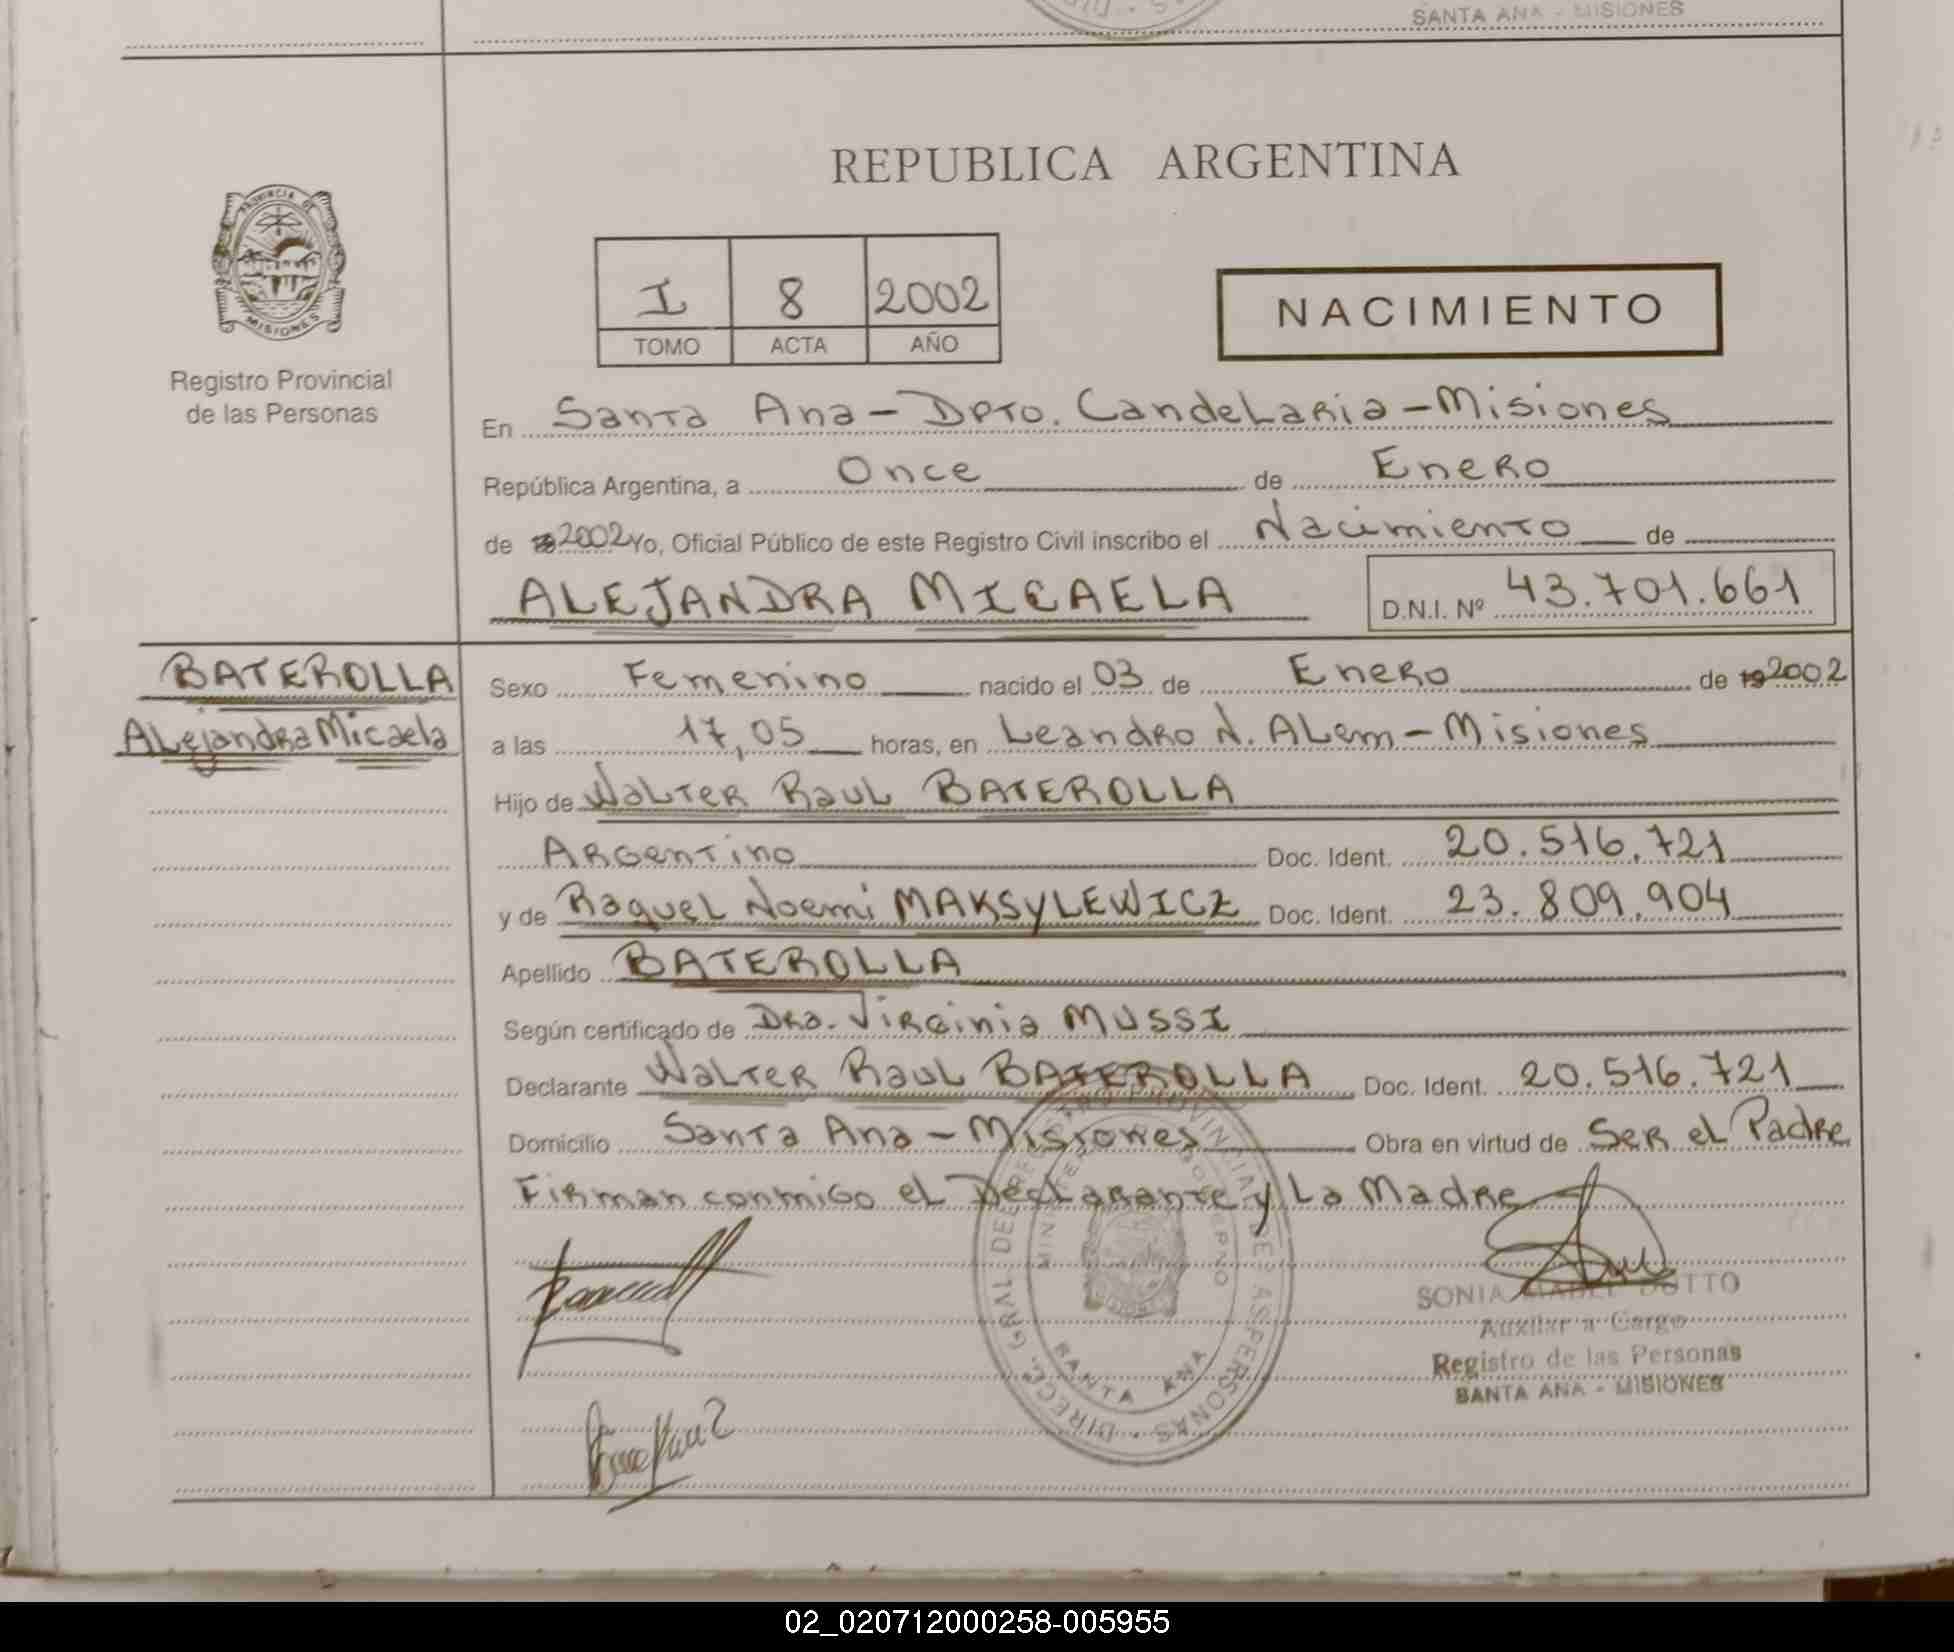 SANTA ANA - MISIONES
REPUBLICA ARGENTINA
PROVINCIA DE
MISIONES
Registro Provincial
de las Personas
I 8 2002
TOMO ACTA AÑO
NACIMIENTO
En Santa Ana - Dpto. Candelaria - Misiones
República Argentina, a Once de Enero
de 19 2002 Yo, Oficial Público de este Registro Civil inscribo el Nacimiento de
ALEJANDRA MICAELA D.N.I. Nº 43.701.661
BATEROLLA
Alejandra Micaela
Sexo Femenino nacido el 03 de Enero de 19 2002
a las 17,05 horas, en Leandro N. Alem - Misiones
Hijo de Walter Raul BATEROLLA
Argentino Doc. Ident. 20.516.721
y de Raquel Noemi MAKSYLEWICZ Doc. Ident. 23.809.904
Apellido BATEROLLA
Según certificado de Dra. Virginia MUSSI
Declarante Walter Raul BATEROLLA Doc. Ident. 20.516.721
Domicilio Santa Ana - Misiones Obra en virtud de Ser el Padre
Firman conmigo el Declarante y La Madre
DIRECC. GRAL DEL REGISTRO PROVINCIAL DE LAS PERSONAS
MINISTERIO GOBIERNO
SANTA ANA
SONIA MABEL DUTTO
Auxiliar a Cargo
Registro de las Personas
SANTA ANA - MISIONES
02_020712000258-005955